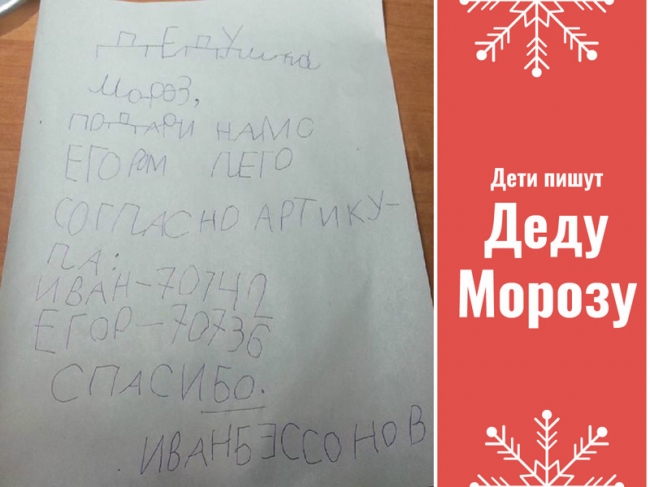 ДЕДУшка
Мороз,
ПОДАРИ НАМО
ЕГОРМ ЛЕГО
СОГЛАСНО АРТИКУ-
ЛА:
ИВАН-70742
ЕГОР-70736
СПАСИБО.
ИВАНБЭССОНОВ
Дети пишут
Деду
Морозу